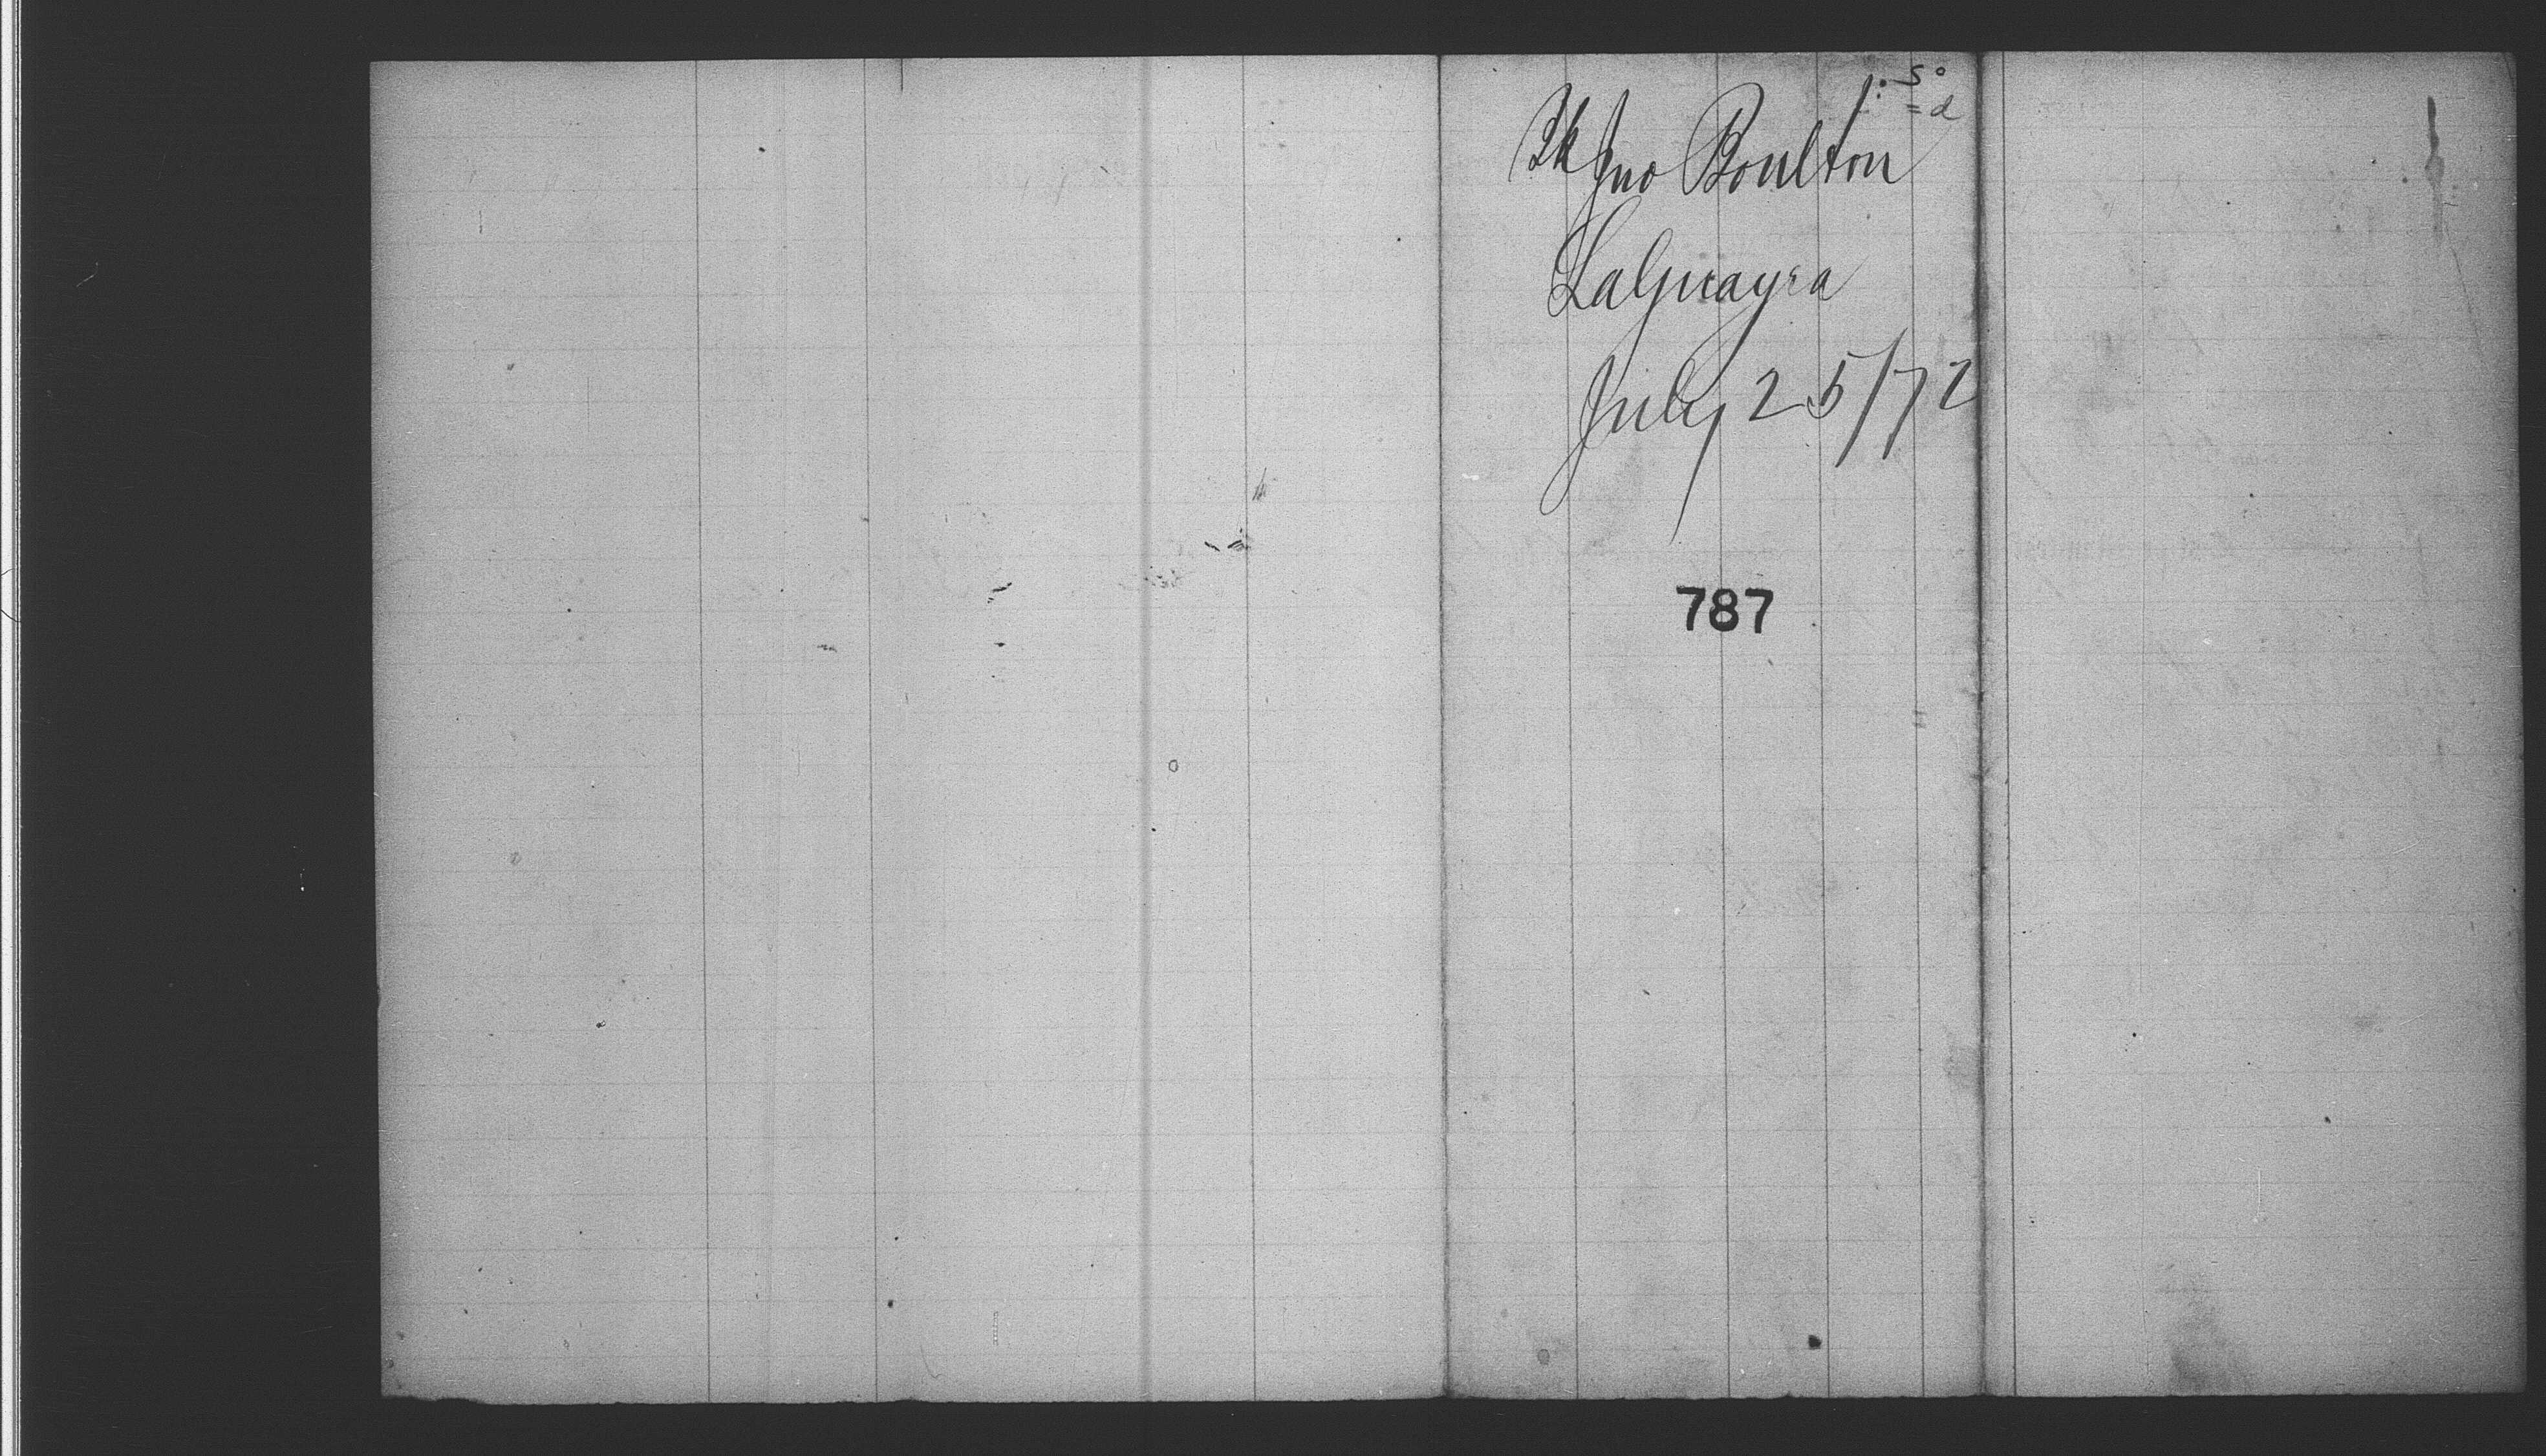 Bk Jno Boulton
LaGuayra
July 25/72
787